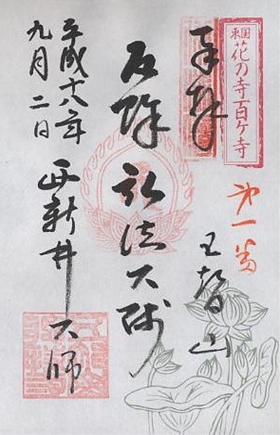 東国花の寺百ヶ寺
第一番
奉拝
五智山
厄除弘法大師
平成十八年
九月二日
西新井大師